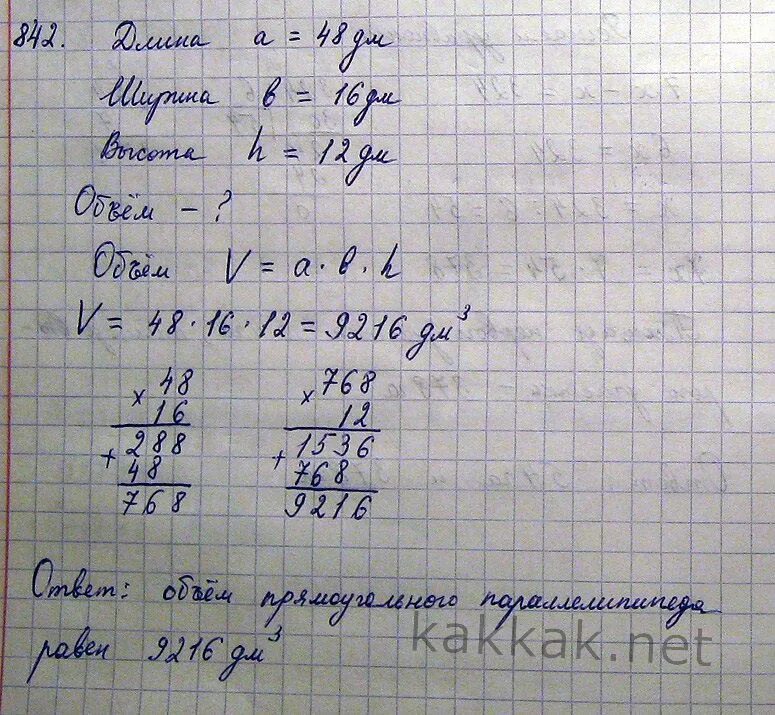 842. Длина a = 48 дм
Ширина b = 16 дм
Высота h = 12 дм
Объём – ?
Объём V = a · b · h
V = 48 · 16 · 12 = 9216 дм³
× 48 × 768
16 12
+ 288 + 1536
48 768
768 9216
Ответ: объём прямоугольного параллелипипеда
равен 9216 дм³
kakkak.net